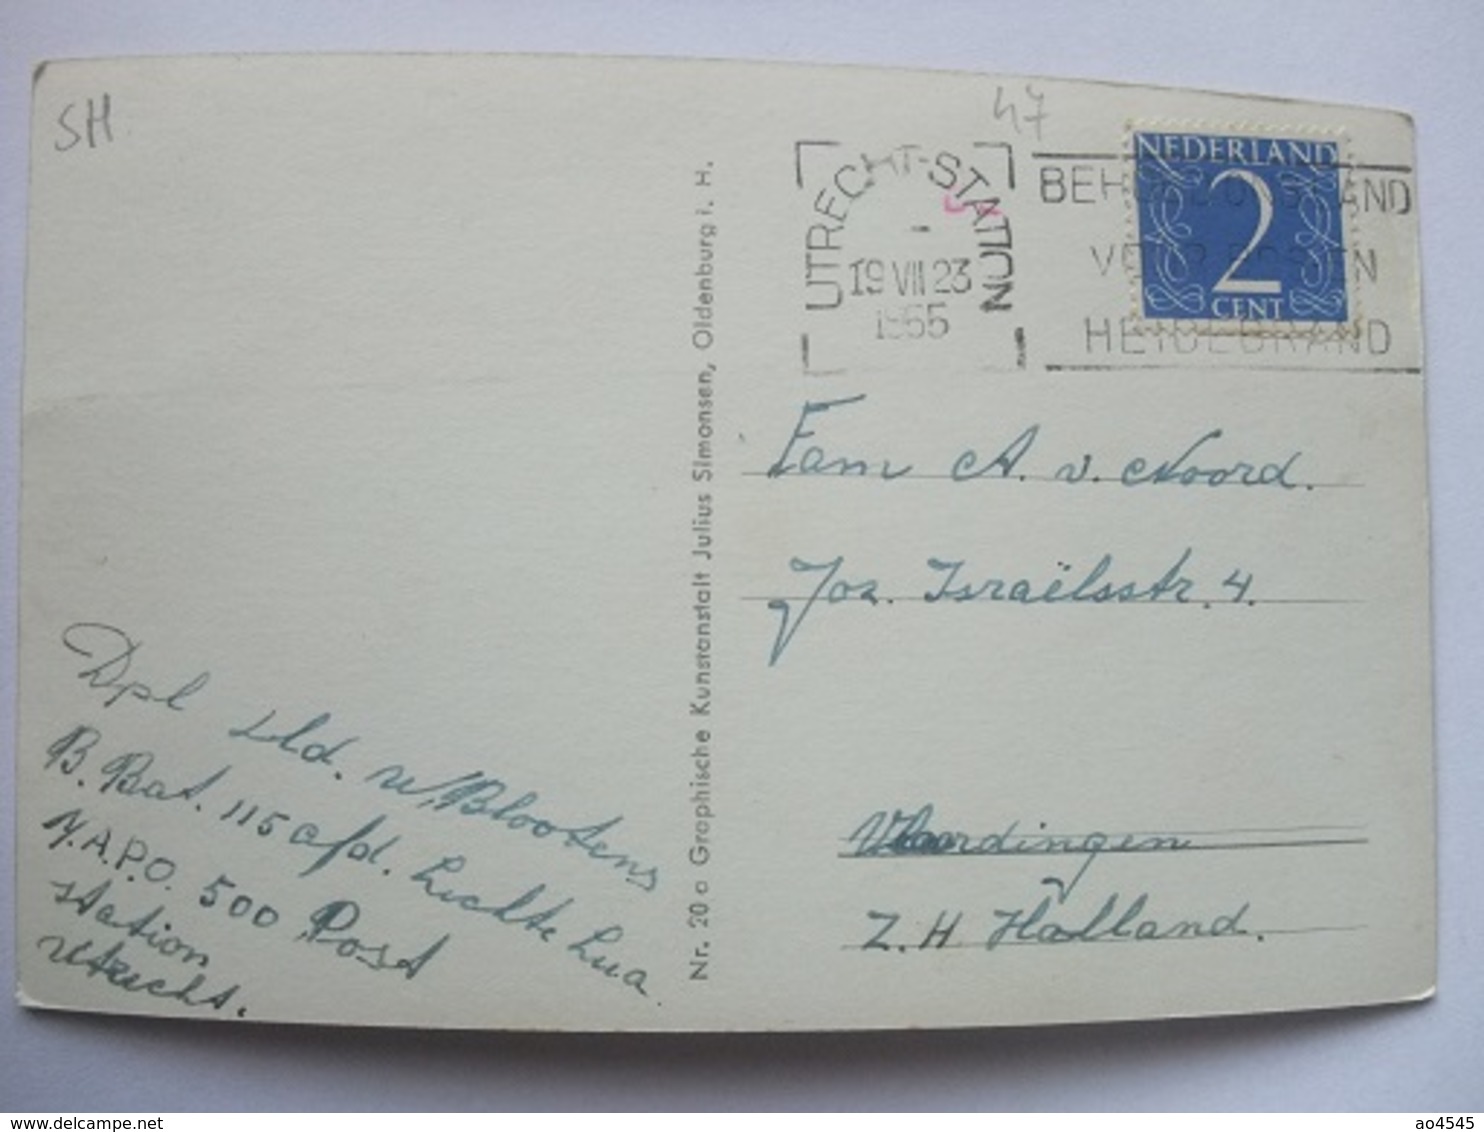 SH
47
UTRECHT-STATION
19 VII 23
1955
NEDERLAND
2
CENT
HEIDEBRAND
Fam A. v. Noord.
Joz. Israëlsstr. 4.
Vlaardingen
Z. H Holland.
Dpl sld. v/ Blootens
B. Bat. 115 afd. Luchte Lua
N.A.P.O. 500 Post
station
Utrecht.
Nr. 20 a Graphische Kunstanstalt Julius Simonsen, Oldenburg i. H.
delcampe.net
ao4545